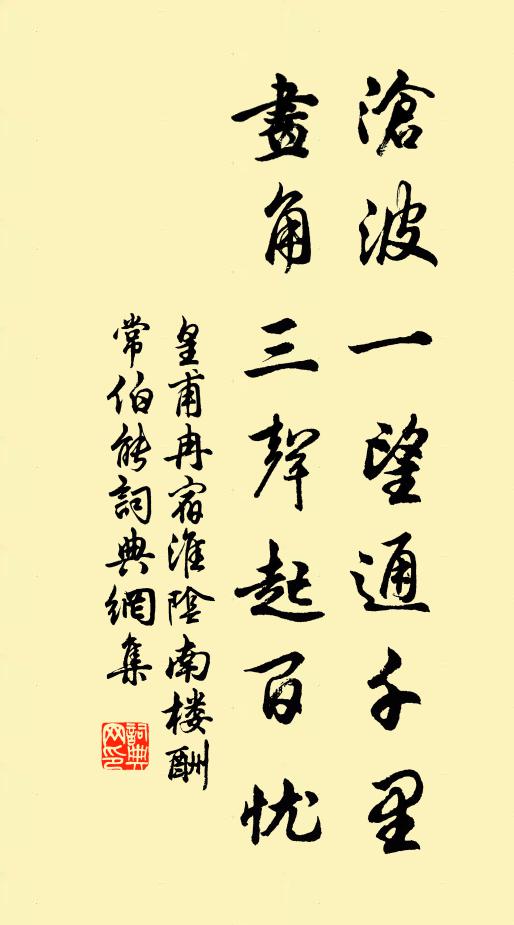 滄波一望通千里
畫角三聲起百忧
皇甫冉宿淮陰南楼酬
常伯能詞典網集
詞典
网印